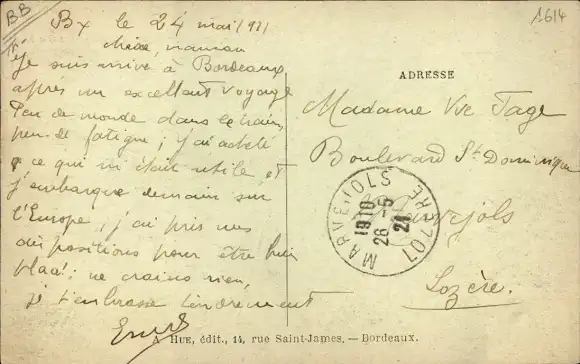 BB
1614
Bx le 24 mai 1921
chère maman
Je suis arrivé à Bordeaux
après un excellent voyage
Peu de monde dans le train
peu de fatigue ; j'ai acheté
ce qui m'était utile, et
j'embarque demain sur
l'Europe, j'ai pris mes
dispositions pour être bien
placé ; ne crains rien,
je t'embrasse tendrement
ADRESSE
Madame Vve Tage
Boulevard St Dominique
Marvejols
Lozère.
MARVEJOLS LOZERE
19 10
26 - 5
21
A HUE, édit., 14, rue Saint-James. — Bordeaux.